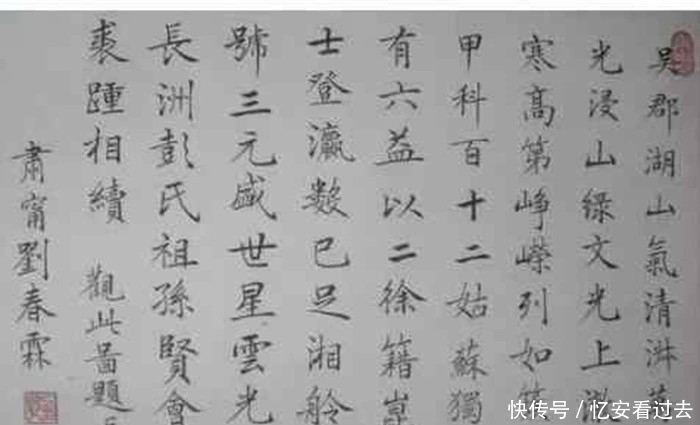 吳郡湖山氣清淑
光浸山綠文光上
寒高第崢嶸列如
甲科百十二姑蘇獨
有六益以二徐籍崑
士登瀛数已足湘舲
號三元盛世星雲光
長洲彭氏祖孫賢會
裘踵相續 觀此啚題
肅甯劉春霖
快传号／忆安看过去